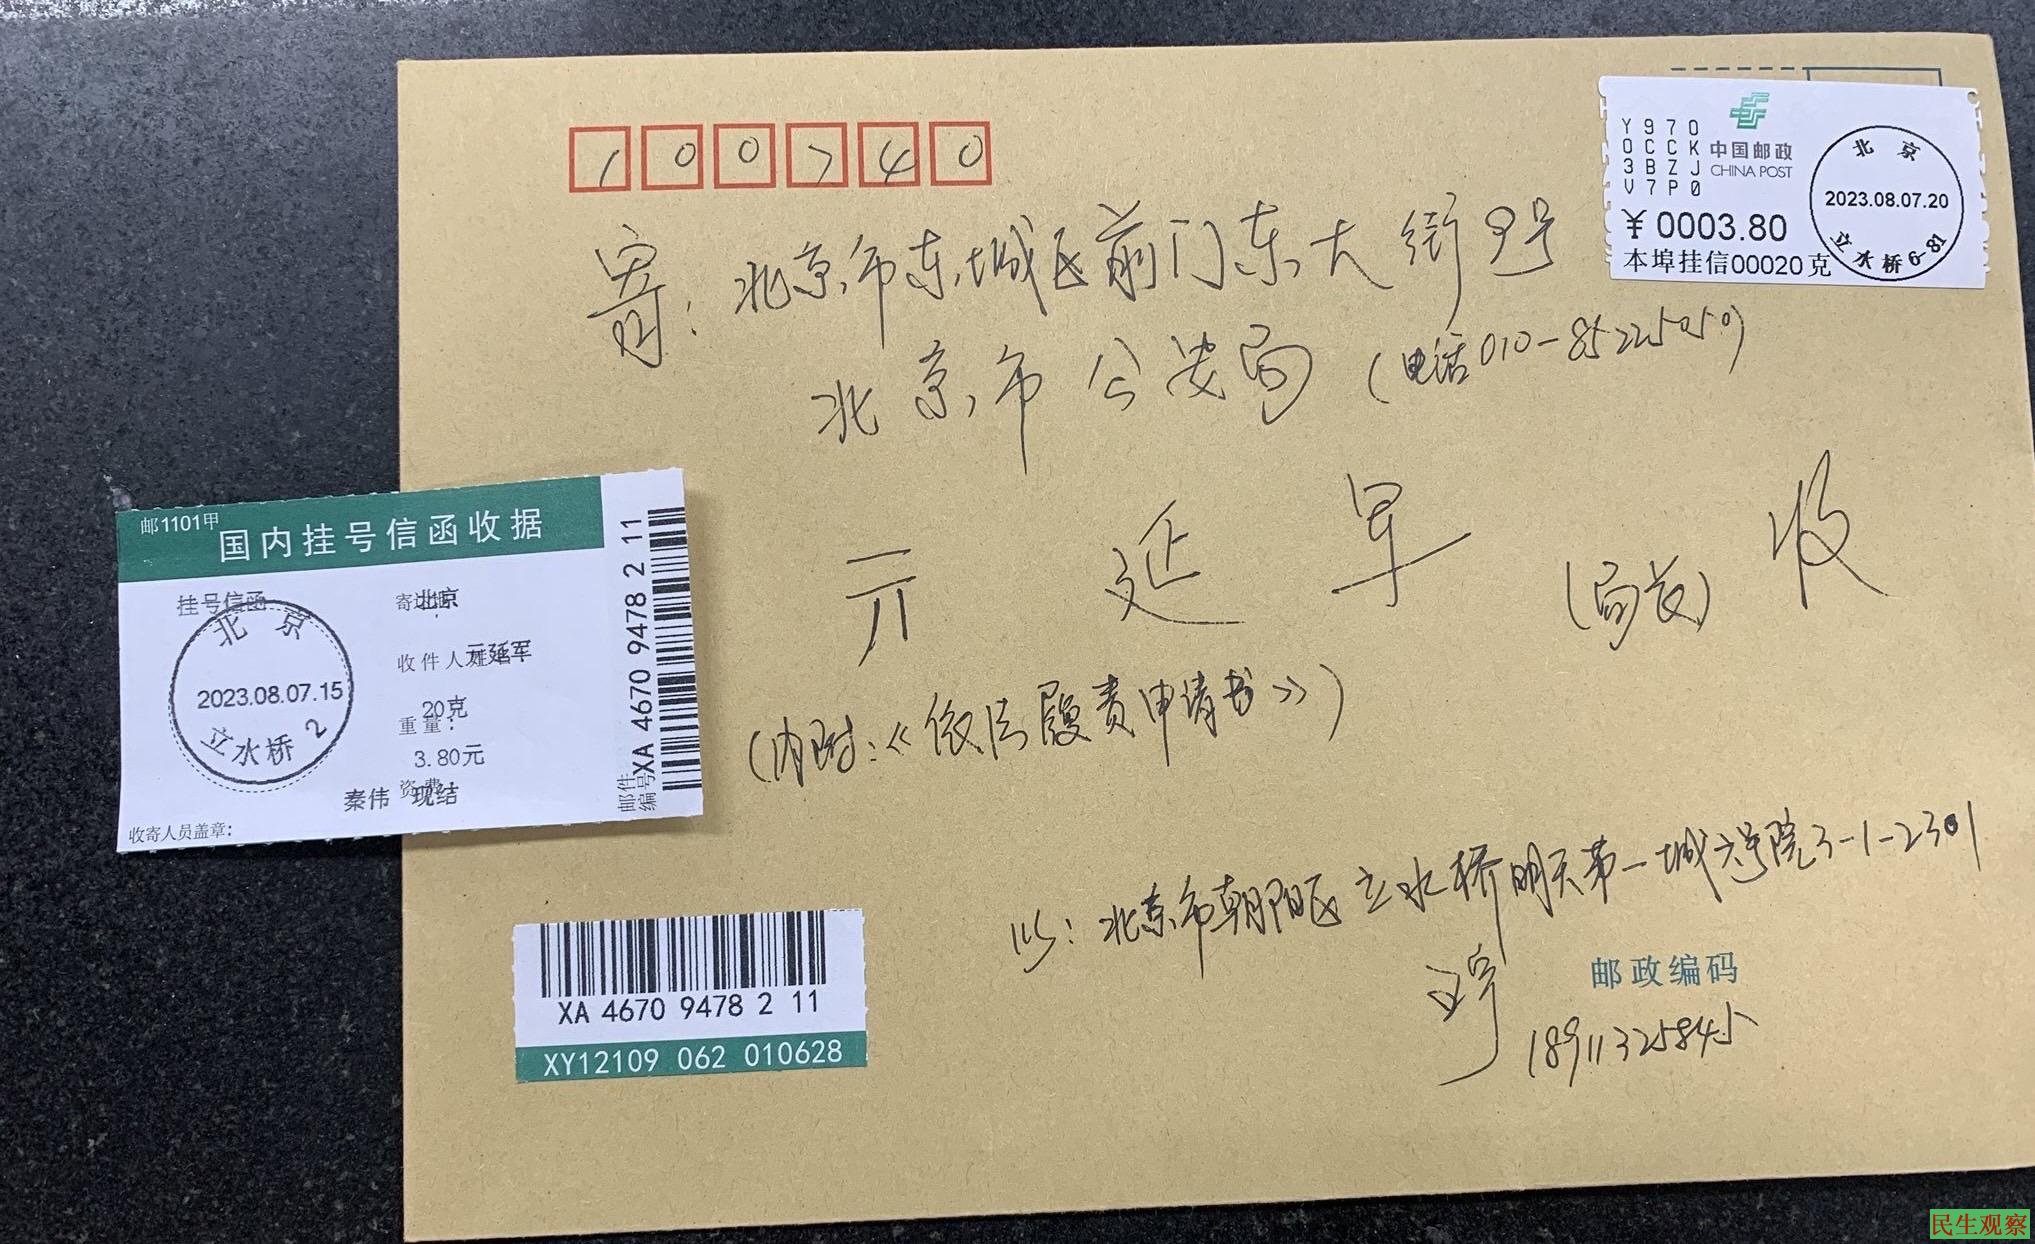 100740
Y970
0CCK
3BZJ
V7P0
中国邮政
CHINA POST
¥0003.80
本埠挂信00020克
北京
2023.08.07.20
立水桥6-81
寄：北京市东城区前门东大街9号
北京市公安局（电话010-85225050）
亓延军（局长）收
（内附：《依法履责申请书》）
北京市朝阳区立水桥明天第一城六号院3-1-2301
邮政编码
18911325845
邮1101甲
国内挂号信函收据
挂号信函
北京
2023.08.07.15
立水桥 2
北京
收件人
亓延军
20克
重量：
3.80元
资费：
秦伟 现结
收寄人员盖章：
邮件编号
XA 4670 9478 2 11
XA 4670 9478 2 11
XY12109 062 010628
民生观察